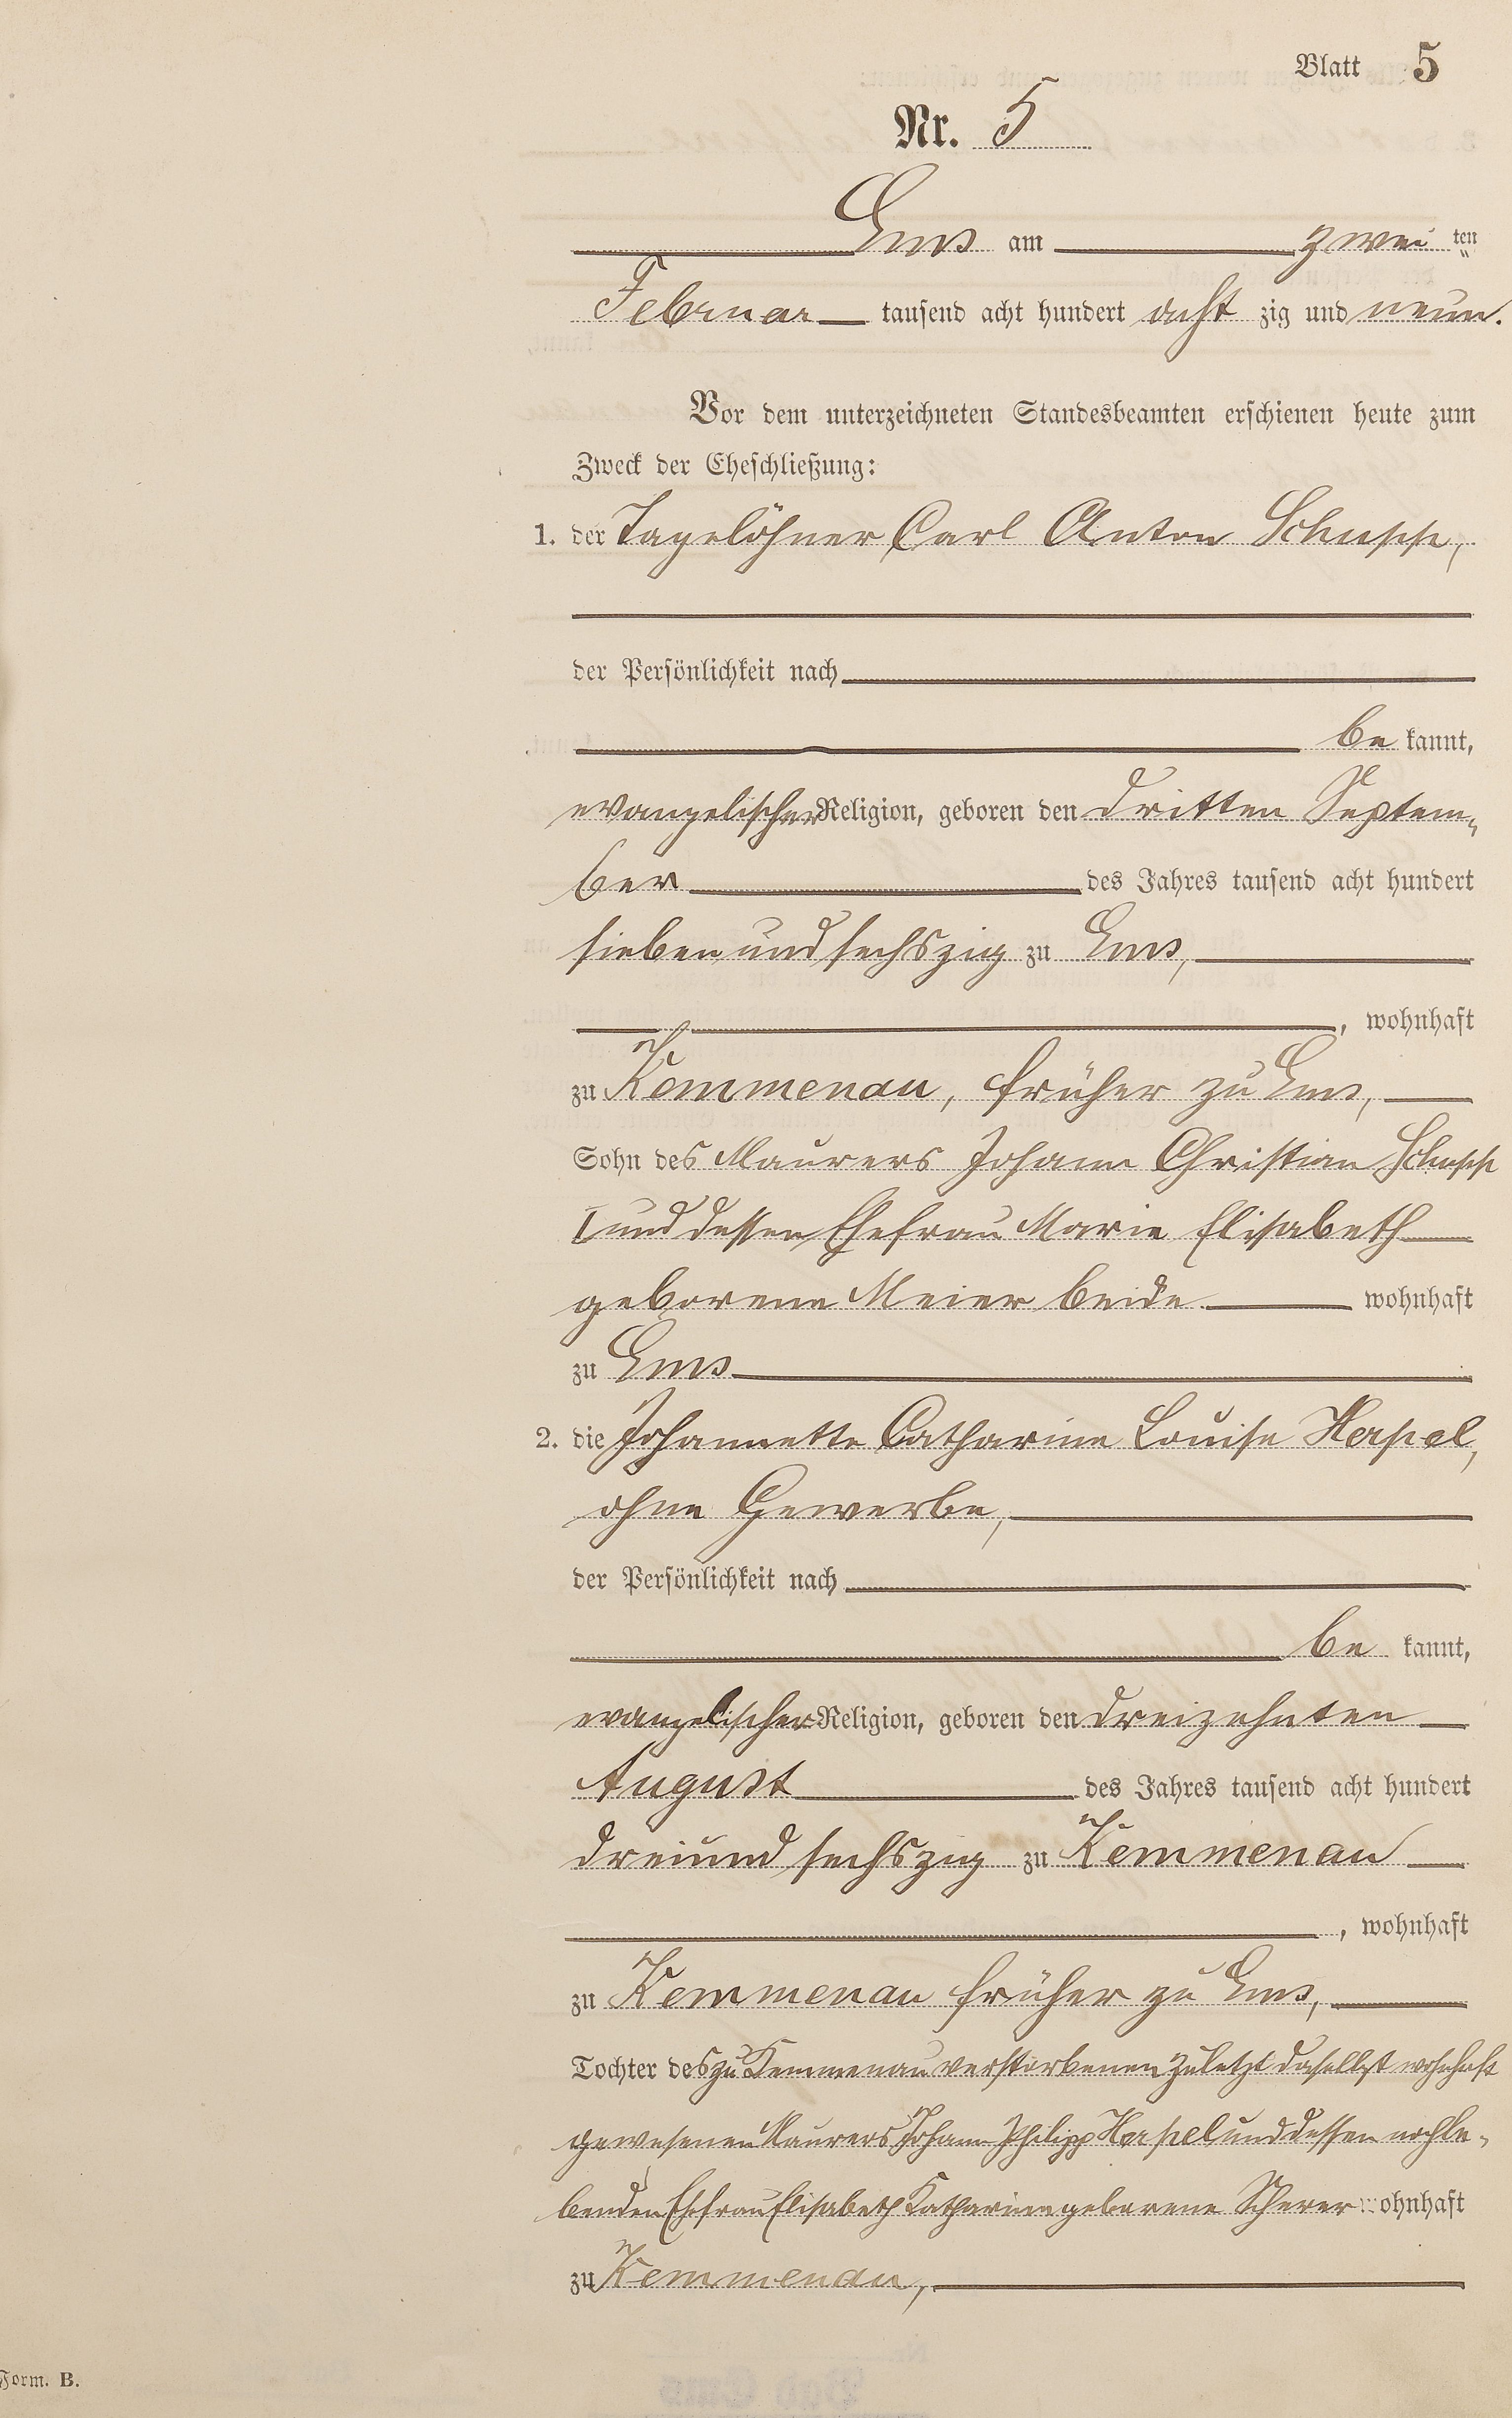 Blatt 5
Nr. 5
Ems am zwei ten
Februar tausend acht hundert acht zig und neun.
Vor dem unterzeichneten Standesbeamten erschienen heute zum
Zweck der Eheschließung:
1. der Tagelöhner Carl Anton Schupp,
der Persönlichkeit nach
be kannt,
evangelischer Religion, geboren den dritten Septem-
ber des Jahres tausend acht hundert
sieben und sechszig zu Ems,
, wohnhaft
zu Kemmenau, früher zu Ems,
Sohn des Maurers Johann Christian Schupp
I und dessen Ehefrau Marie Elisabeth
geborene Meier beide wohnhaft
zu Ems
2. die Johannette Catharine Louise Haspel,
ohne Gewerbe,
der Persönlichkeit nach
be kannt,
evangelischer Religion, geboren den dreizehnten
August des Jahres tausend acht hundert
dreiund sechszig zu Kemmenau
, wohnhaft
zu Kemmenau früher zu Ems,
Tochter des zu Kemmenau verstorbenen zuletzt daselbst wohnhaft
gewesenen Maurers Johann Philipp Haspel und dessen noch le-
benden Ehefrau Elisabeth Katharine geborene Scherer wohnhaft
zu Kemmenau,
Form. B.